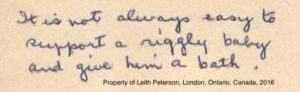 It is not always easy to
support a riggly baby
and give him a bath.
Property of Leith Peterson, London, Ontario, Canada, 2016